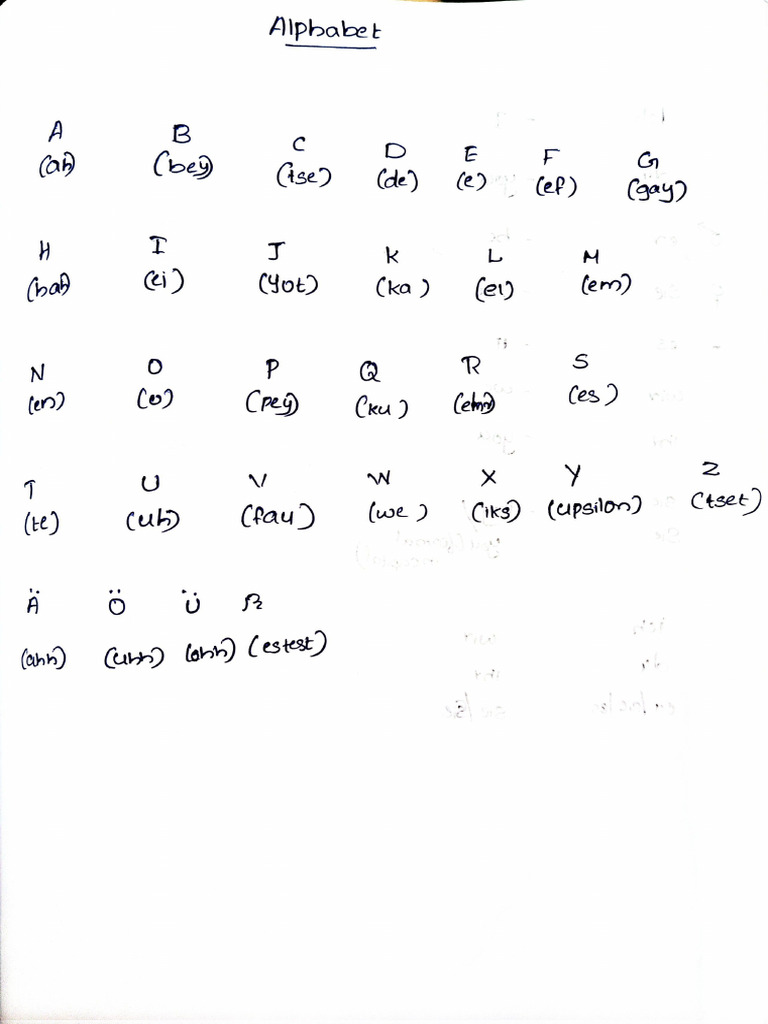 Alphabet
A B C D E F G
(ah) (bey) (tse) (de) (e) (ef) (gay)
H I J K L M
(hah) (ei) (yot) (ka) (el) (em)
N O P Q R S
(en) (o) (pey) (ku) (es)
T U V W X Y Z
(te) (uh) (fau) (we) (iks) (upsilon) (tset)
Ä Ö Ü ß
(ahh) (uhh) (ohh) (estest)